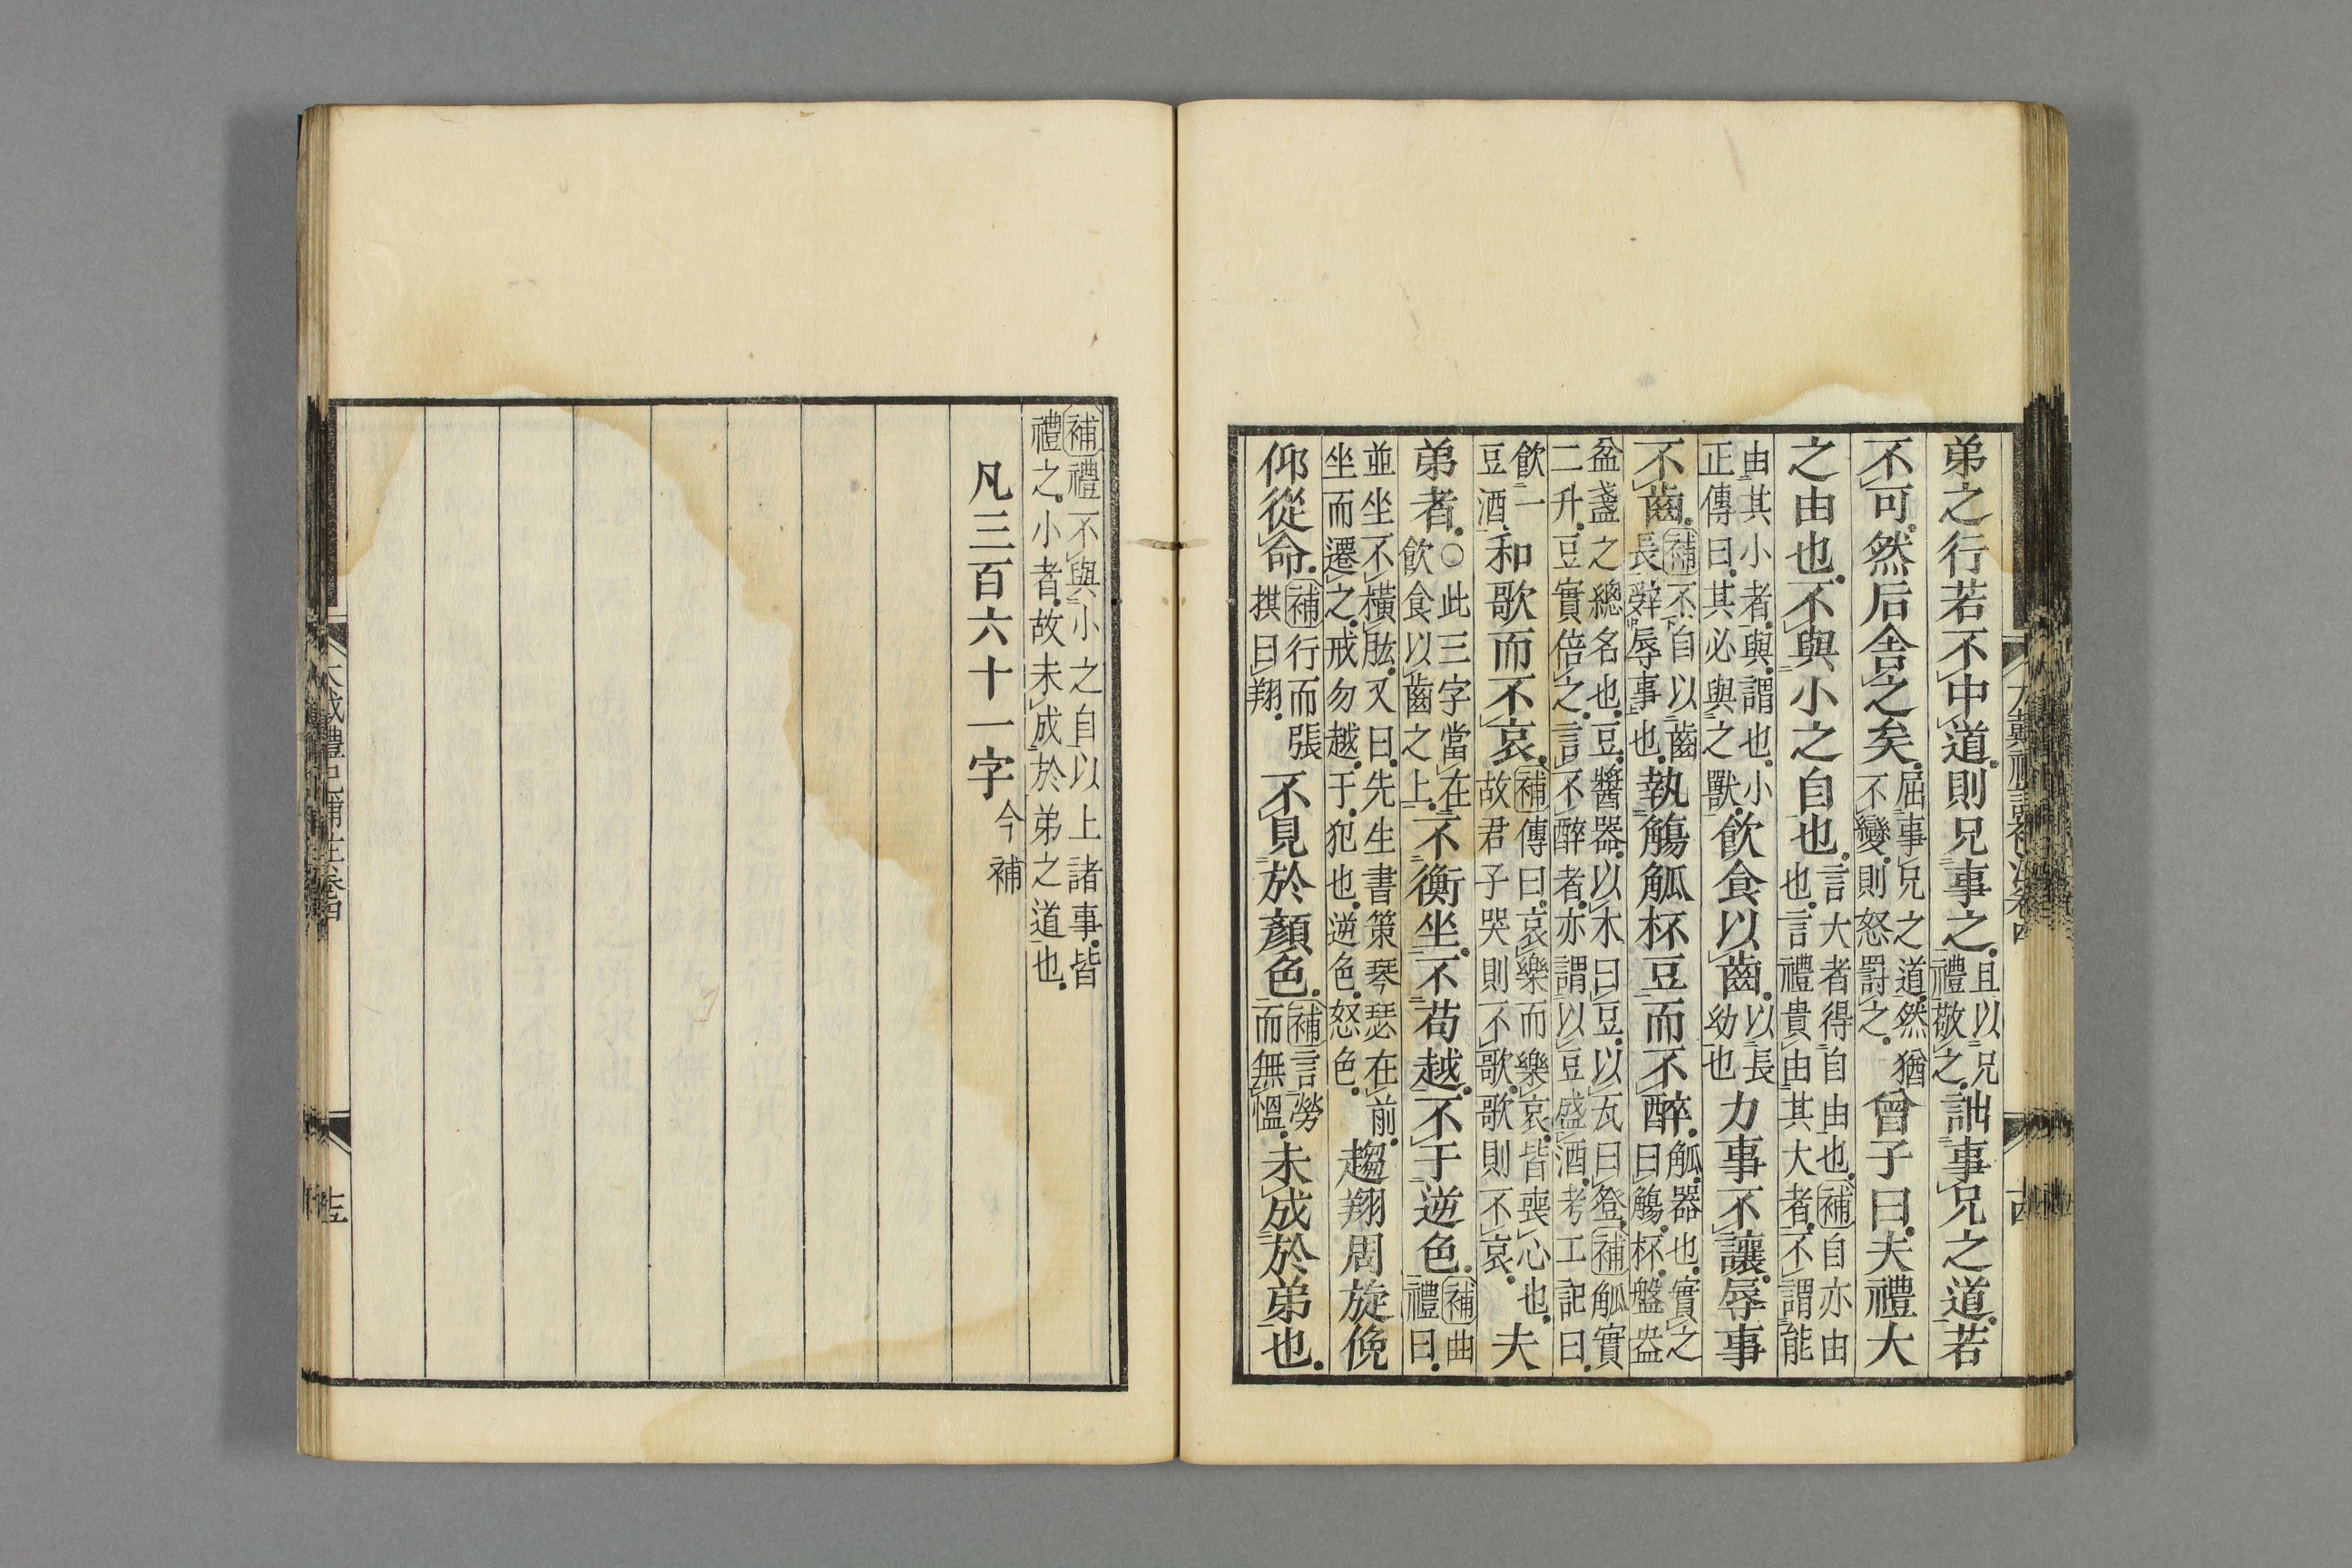 弟之行若不中道則兄事之且以兄禮敬之詘事兄之道若
不可然后舍之矣屈事兄之道然猶不變則怒罸之曾子曰夫禮大
之由也不與小之自也言大者得自由也補自亦由也言禮貴由其大者不謂能
由其小者與謂也小正傳曰其必與之獸飲食以齒以長幼也力事不讓辱事
不齒補不自以齒長辭辱事也執觴觚杯豆而不醉觚器也實之曰觴杯盤盎
盆盞之總名也豆醬器以木曰豆以瓦曰登補觚實二升豆實倍之言不醉者亦謂以豆盛酒考工記曰
飲一豆酒和歌而不哀補傳曰哀樂而樂哀皆喪心也故君子哭則不歌歌則不哀夫
弟者○此三字當在飲食以齒之上不衡坐不苟越不于逆色補曲禮曰
並坐不橫肱又曰先生書策琴瑟在前坐而遷之戒勿越于犯也逆色怒色趨翔周旋俛
仰從命補行而張拱曰翔不見於顏色補言勞而無慍未成於弟也
補禮不與小之自以上諸事皆禮之小者故未成於弟之道也
凡三百六十一字今補